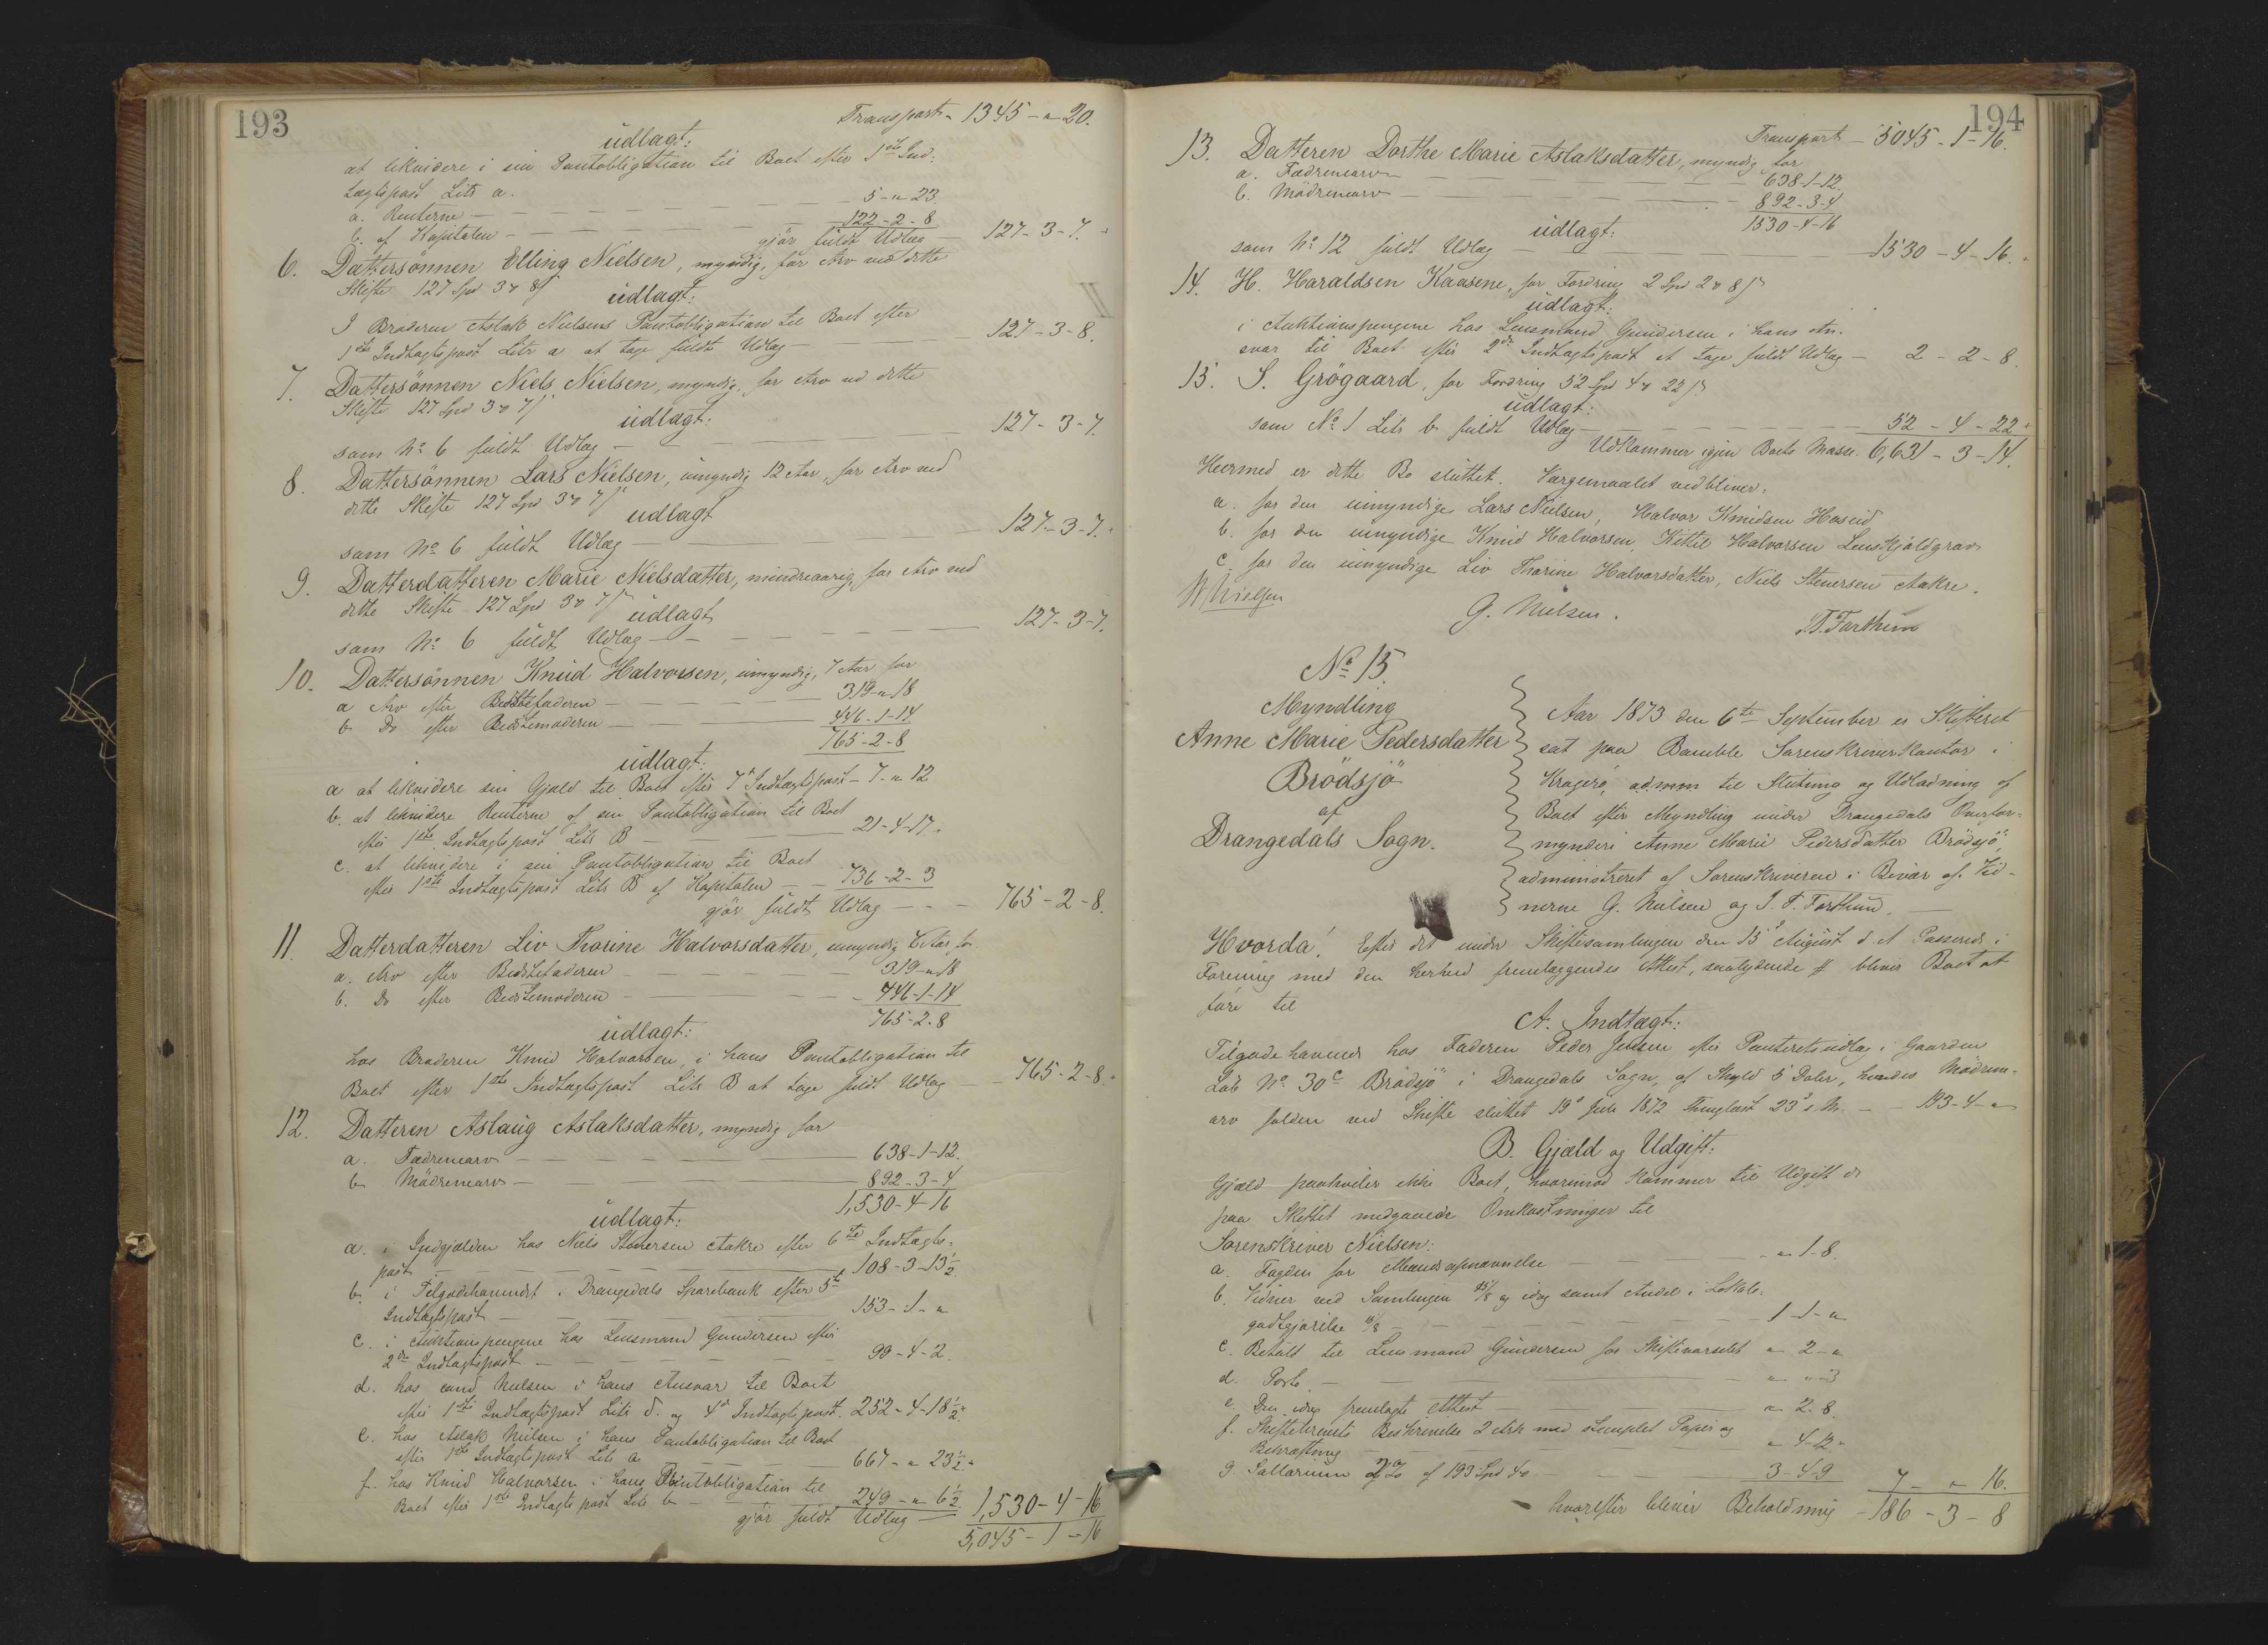 193
Transport - 1345 - " 20.
udlagt:
at likvidere i sin Pantobligation til Boet efter 1ste Ind-
tægtspost Litr a.
a. Renterne - 5 - " 23.
b. af Kapitalen - 122 - 2 - 8
gjør fuldt Udlæg 127 - 3 - 7.
6. Dattersønnen Elling Nielsen, myndig, for Arv ved dette
Skifte 127 Spd 3 # 8 ß
udlagt:
I Broderen Aslak Nielsens Pantobligation til Boet efter
1ste Indtægtspost Litr a at tage fuldt Udlæg - 127 - 3 - 8.
7. Dattersønnen Niels Nielsen, myndig, for Arv ved dette
Skifte 127 Spd 3 # 7 ß
udlagt:
som No 6 fuldt Udlæg - 127 - 3 - 7.
8. Dattersønnen Lars Nielsen, umyndig 12 Aar, for Arv ved
dette Skifte 127 Spd 3 # 7 ß
udlagt
som No 6 fuldt Udlæg - 127 - 3 - 7.
9. Datterdatteren Marie Nielsdatter, mindreaarig, for Arv ved
dette Skifte 127 Spd 3 # 7 ß
udlagt
som No 6 fuldt Udlæg - 127 - 3 - 7.
10. Dattersønnen Knud Halvorsen, umyndig, 7 Aar for
a Arv efter Bedstefaderen - 319 - " 18
b Do efter Bedstemoderen - 446 - 1 - 14
765 - 2 - 8
udlagt:
a at likvidere sin Gjæld til Boet efter 7de Indtægtspost - 7 - " 12
b. at likvidere Renterne af sin Pantobligation til Boet
efter 1ste Indtægtspost Litr B - 21 - 4 - 17.
c. at likvidere i sin Pantobligation til Boet
efter 1ste Indtægtspost Litr B af Kapitalen - 736 - 2 - 3
gjør fuldt Udlæg - 765 - 2 - 8.
11. Datterdatteren Liv Thorine Halvorsdatter, umyndig 6 Aar for
a. Arv efter Bedstefaderen - 319 - " 18
b. Do efter Bedstemoderen - 446 - 1 - 14
765 - 2 - 8
udlagt:
hos Broderen Knud Halvorsen, i hans Pantobligation til
Boet efter 1ste Indtægtspost Litr B at tage fuldt Udlæg - 765 - 2 - 8.
12. Datteren Aslaug Aslaksdatter, myndig for
a. Fædrenearv - 638 - 1 - 12.
b Mødrenearv - 892 - 3 - 4
1,530 - 4 - 16
udlagt:
a. i Indgjælden hos Niels Stenersen Aakre efter 6te Indtægts-
post - 108 - 3 - 13½
b. i Tilgodehavendet i Drangedals Sparebank efter 5te
Indtægtspost - 153 - 1 - "
c. i Auktionspengene hos Lensmand Gundersen efter
2den Indtægtspost - 99 - 4 - 2.
d. hos cand Nielsen i hans Ansvar til Boet
efter 1ste Indtægtspost Litr d. og 4de Indtægtspost. 252 - 4 - 18½.
e. hos Aslak Nielsen i hans Pantobligation til Boet
efter 1ste Indtægtspost Litr a - 667 - " 23½.
f. hos Knud Halvorsen i hans Pantobligation til
Boet efter 1ste Indtægtspost Litr b - 249 - " 6½.
gjør fuldt Udlæg - 1,530 - 4 - 16
5,045 - 1 - 16
194
Transport - 5045 - 1 - 16.
13. Datteren Dorthe Marie Aslaksdatter, myndig for
a. Fædrenearv - 638 - 1 - 12.
b. Mødrenearv - 892 - 3 - 4
1530 - 4 - 16
udlagt:
som No 12 fuldt Udlæg - 1530 - 4 - 16.
14. H. Haraldsen Kaasene, for Fordring 2 Spd 2 # 8 ß
udlagt:
i Auktionspengene hos Lensmand Gundersen i hans An-
svar til Boet efter 2den Indtægtspost at tage fuldt Udlæg - 2 - 2 - 8.
15. S. Grögaard, for Fordring 52 Spd 4 # 22 ß
udlagt:
som No 1 Litr b fuldt Udlæg - 52 - 4 - 22
Udkommer igjen Boets Masse. 6,631 - 3 - 14.
Hermed er dette Bo sluttet. Værgemaalet vedbliver:
a. for den umyndige Lars Nielsen, Halvor Knudsen Hoseid
b. for den umyndige Knud Halvorsen, Kittil Halvorsen
c. for den umyndige Liv Thorine Halvorsdatter, Niels Stenersen Aakre.
W Nielsen
G. Nielsen.
J. F. Forthun
No 15.
Myndling
Anne Marie Pedersdatter
Brödsjö
af
Drangedals Sogn.
Aar 1873 den 6te September er Skifteret
sat paa Bamble Sorenskriverkontor i
Kragerø, admin til Slutning og Udlodning af
Boet efter Myndling under Drangedals Overfor-
mynderi Anne Marie Pedersdatter Brödsjö,
administreret af Sorenskriveren i Bivær af Vid-
nerne G. Nielsen og J. F. Forthun. -
Hvorda! Efter det under Skiftesamlingen den 15de August d A Passerede i
Forening med den herhed fremlæggendes Attest, saalydende # bliver Boet at
føre til
A. Indtægt:
Tilgodehavende hos Faderen Peder Jensen efter Panteretsudlæg i Gaarden
Løb No 30c Brödsjö i Drangedals Sogn, af Skyld 5 Daler, hendes Mødren-
arv falden ved Skifte sluttet 19de Juli 1872 thinglæst 23de s. M. - 193 - 4 - "
B. Gjæld og Udgift:
Gjæld paahviler ikke Boet, hvorimod kommer til Udgift de
paa Skiftet medgaaede Omkostninger til
Sorenskriver Nielsen:
a. Fogden for Mændsopnævnelse - " 1 - 8.
b. Vidner ved Samlingen 15/8 og idag samt Andel i Lokale-
godtgjørelse 15/8 - 1 - 1 - "
c. Betalt til Lensmand Gundersen for Skiftevarselet " 2 - "
d. Porto - " " 3
e. Den idag fremlagte Attest - " 2 - 8.
f. Skiftebrevets Beskrivelse 2 Ark med stemplet Papir og
Bekræftning - " 4 - 12.
g. Sallarium af 193 Spd 4 # - 3 - 4 - 9
7 - " 16.
hvorefter bliver Beholdning - 186 - 3 - 8